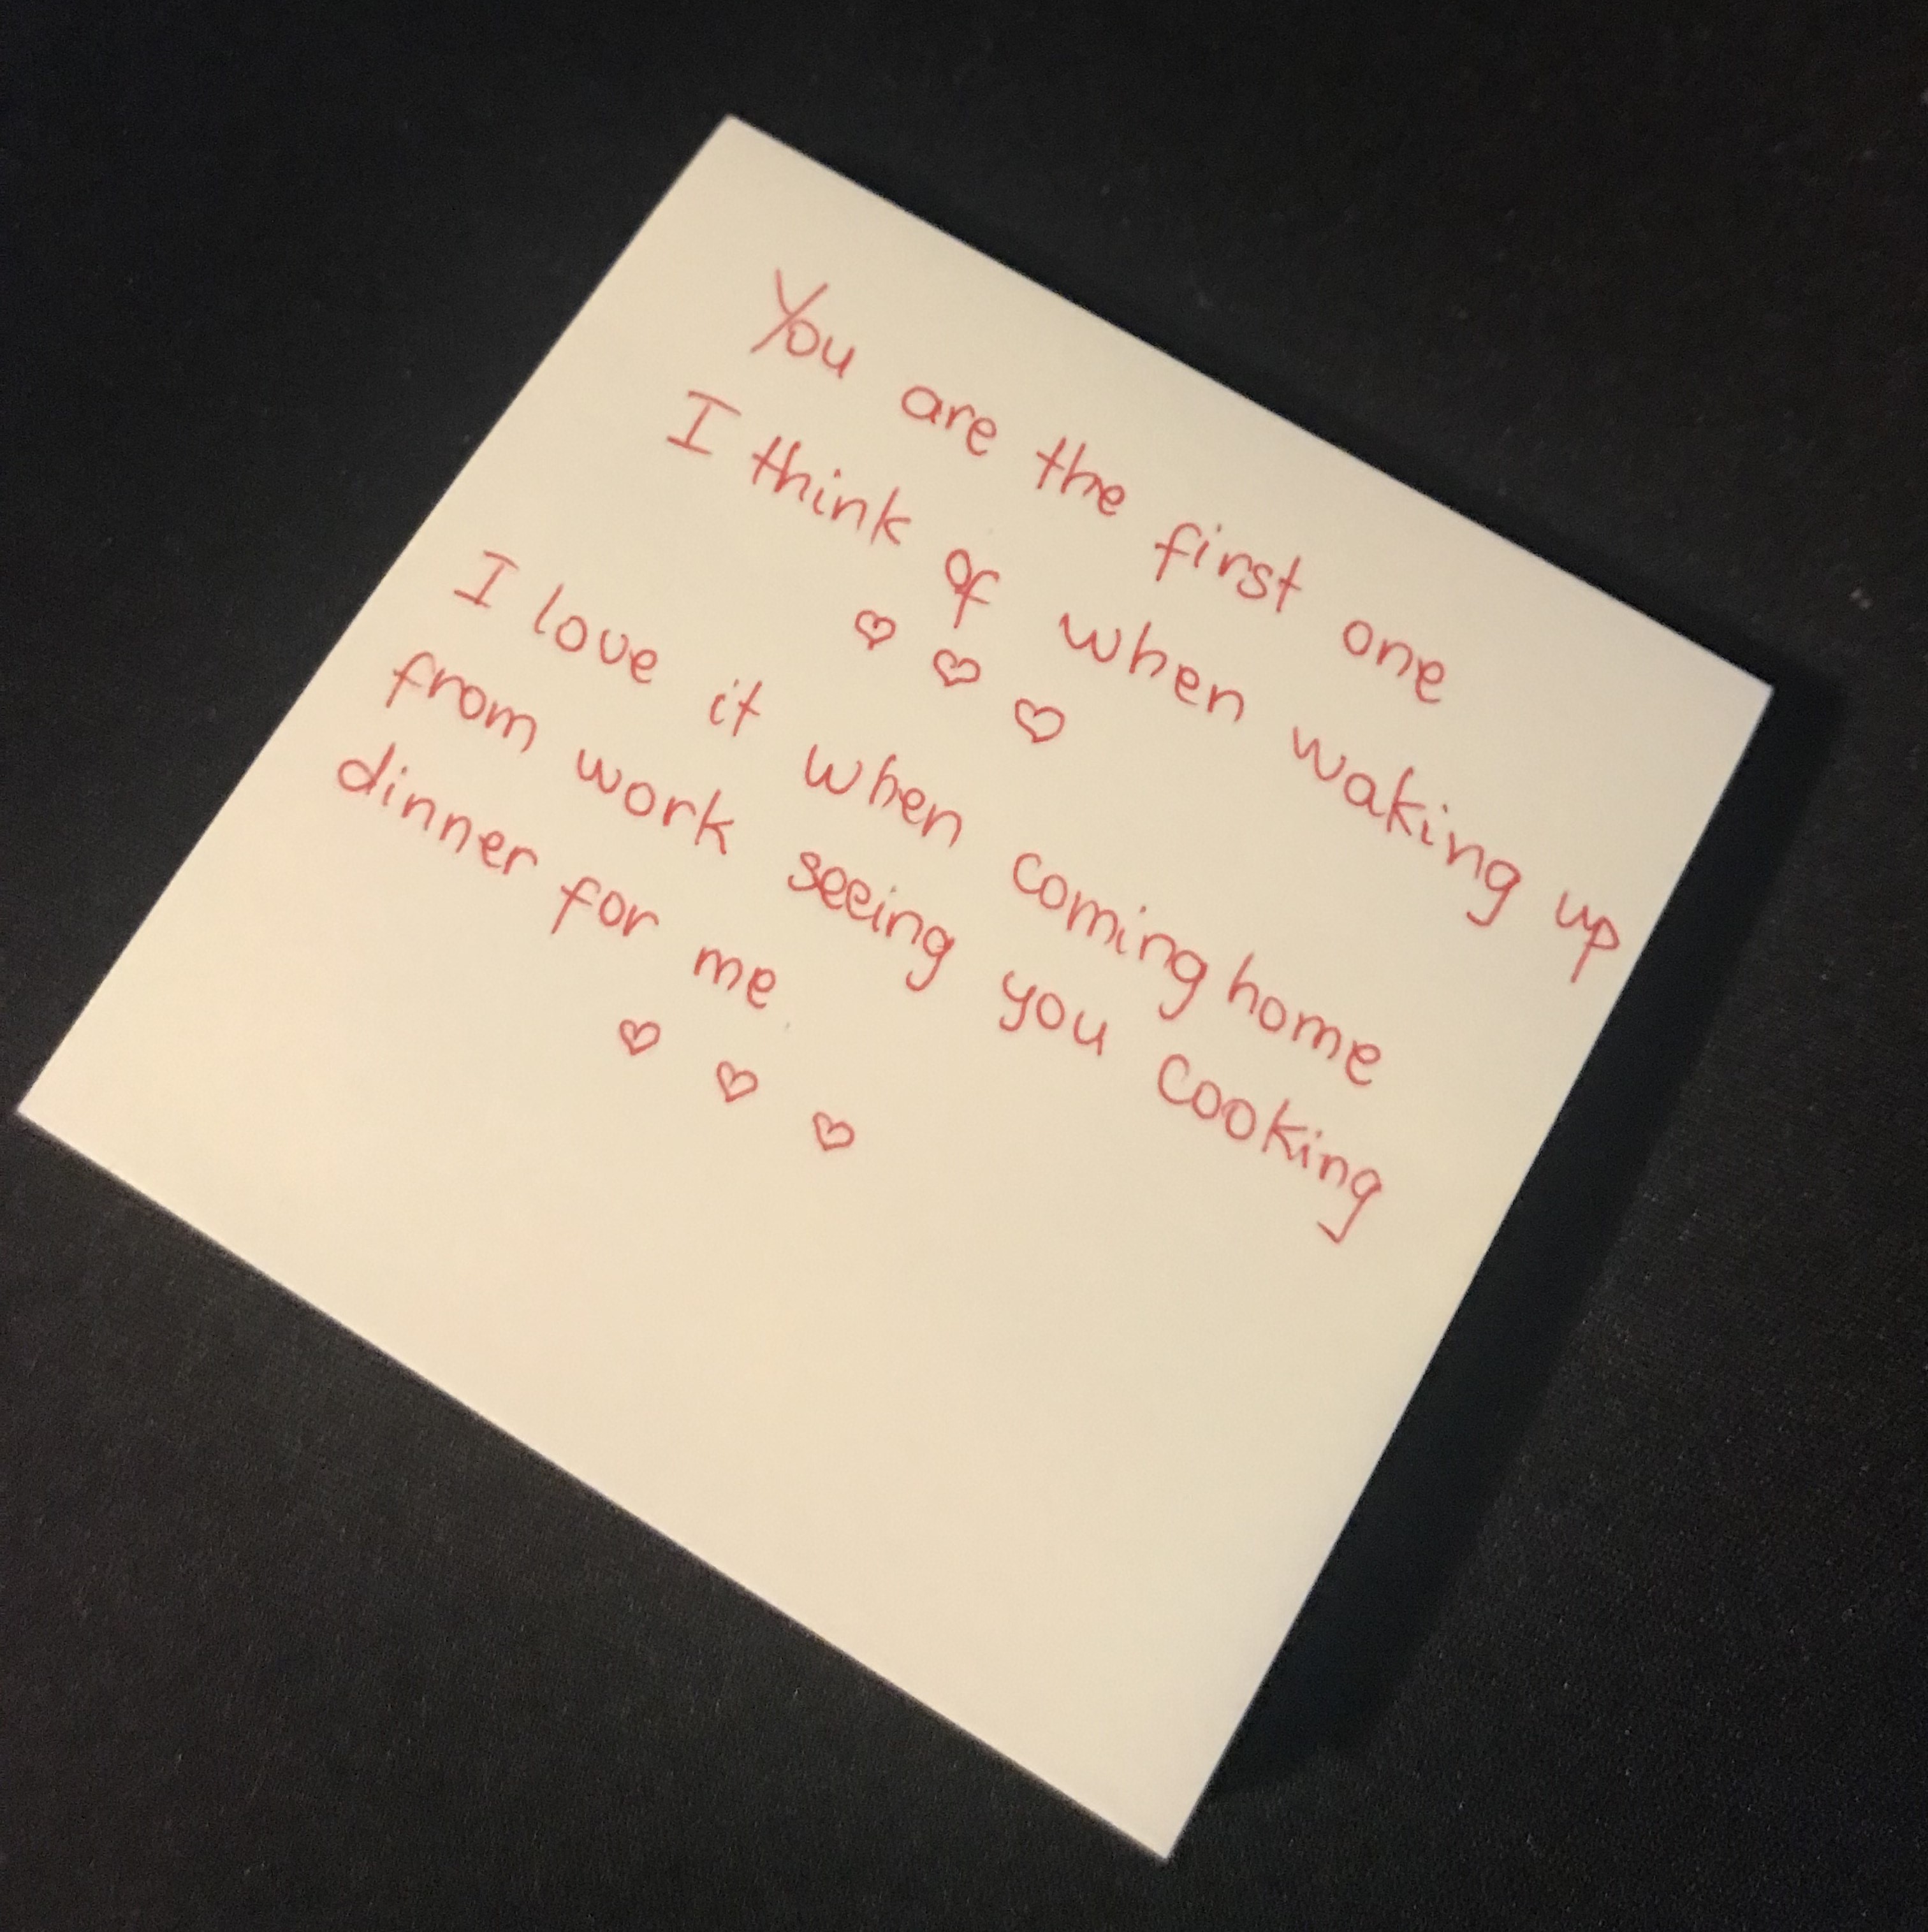 You are the first one
I think of when waking up
♡ ♡ ♡
I love it when coming home
from work seeing you cooking
dinner for me
♡ ♡ ♡